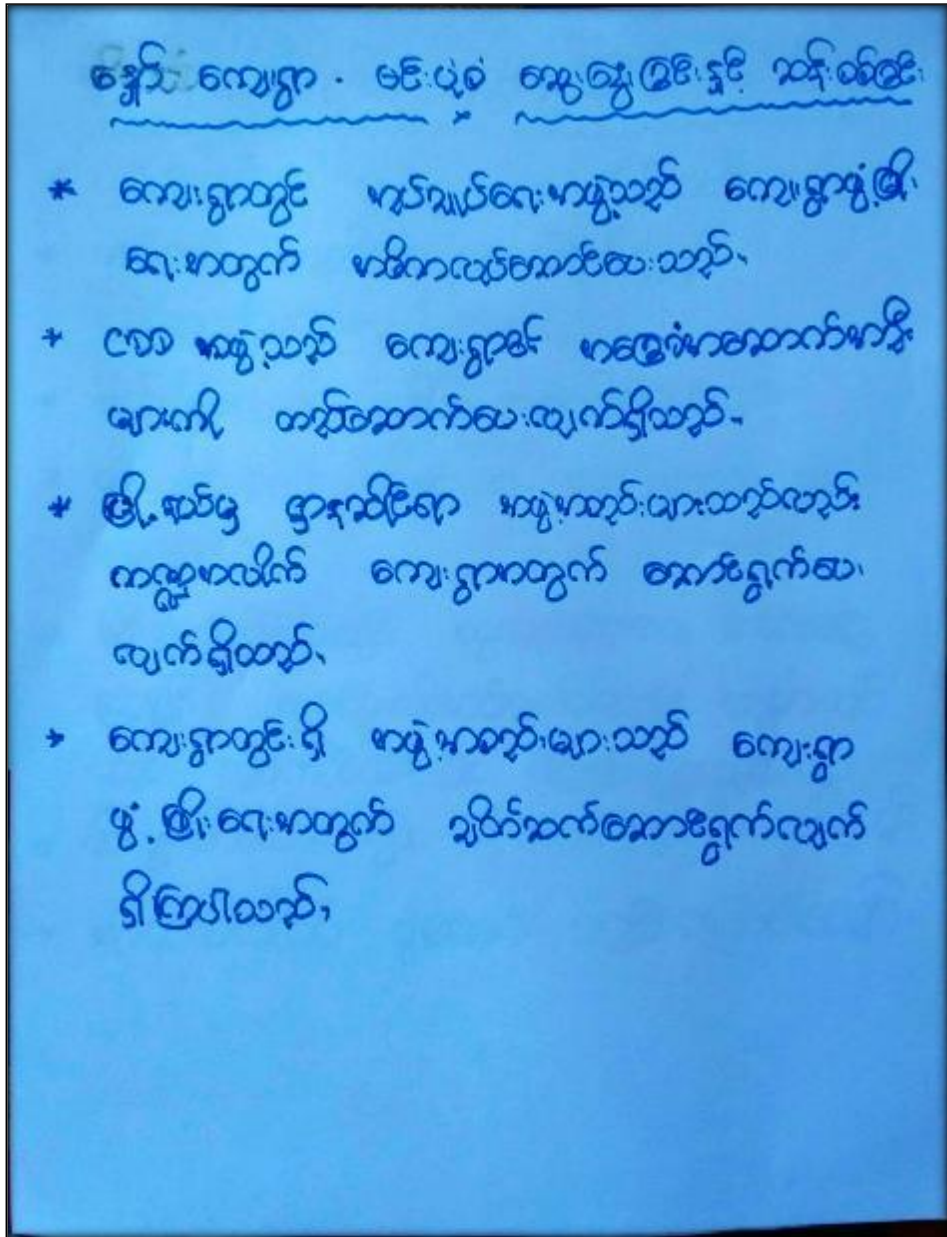 ကျေးရွာ . ပင်းပုံစံ ဆွေးနွေးခြင်းနှင့် ဆန်းစစ်ခြင်း
* ကျေးရွာတွင် အုပ်ချုပ်ရေးအဖွဲ့သည် ကျေးရွာဖွံ့ဖြိုး
ရေးအတွက် အဓိကလုပ်ဆောင်ပေးသည်။
* အဖွဲ့သည် ကျေးရွာ၏ အခြေခံအဆောက်အဦး
များကို တည်ဆောက်ပေးလျက်ရှိသည်။
* မြို့နယ်မှ ဌာနဆိုင်ရာ အဖွဲ့အစည်းများသည်လည်း
ကဏ္ဍအလိုက် ကျေးရွာအတွက် ဆောင်ရွက်ပေး
လျက်ရှိသည်။
* ကျေးရွာတွင်းရှိ အဖွဲ့အစည်းများသည် ကျေးရွာ
ဖွံ့ဖြိုးရေးအတွက် ချိတ်ဆက်ဆောင်ရွက်လျက်
ရှိကြပါသည်။